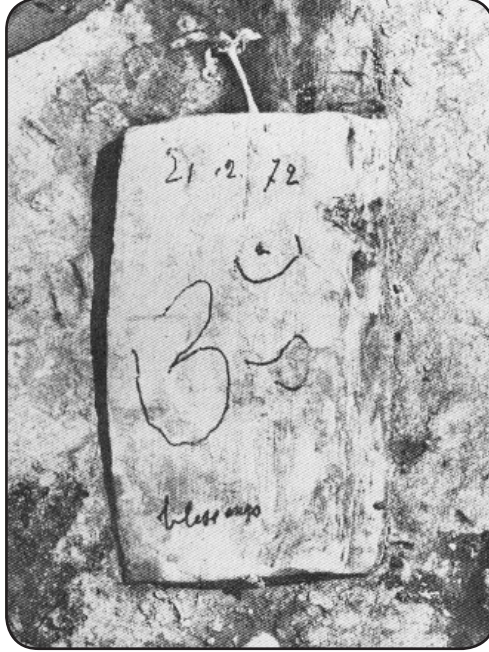 21.2.72
ॐ
blessings